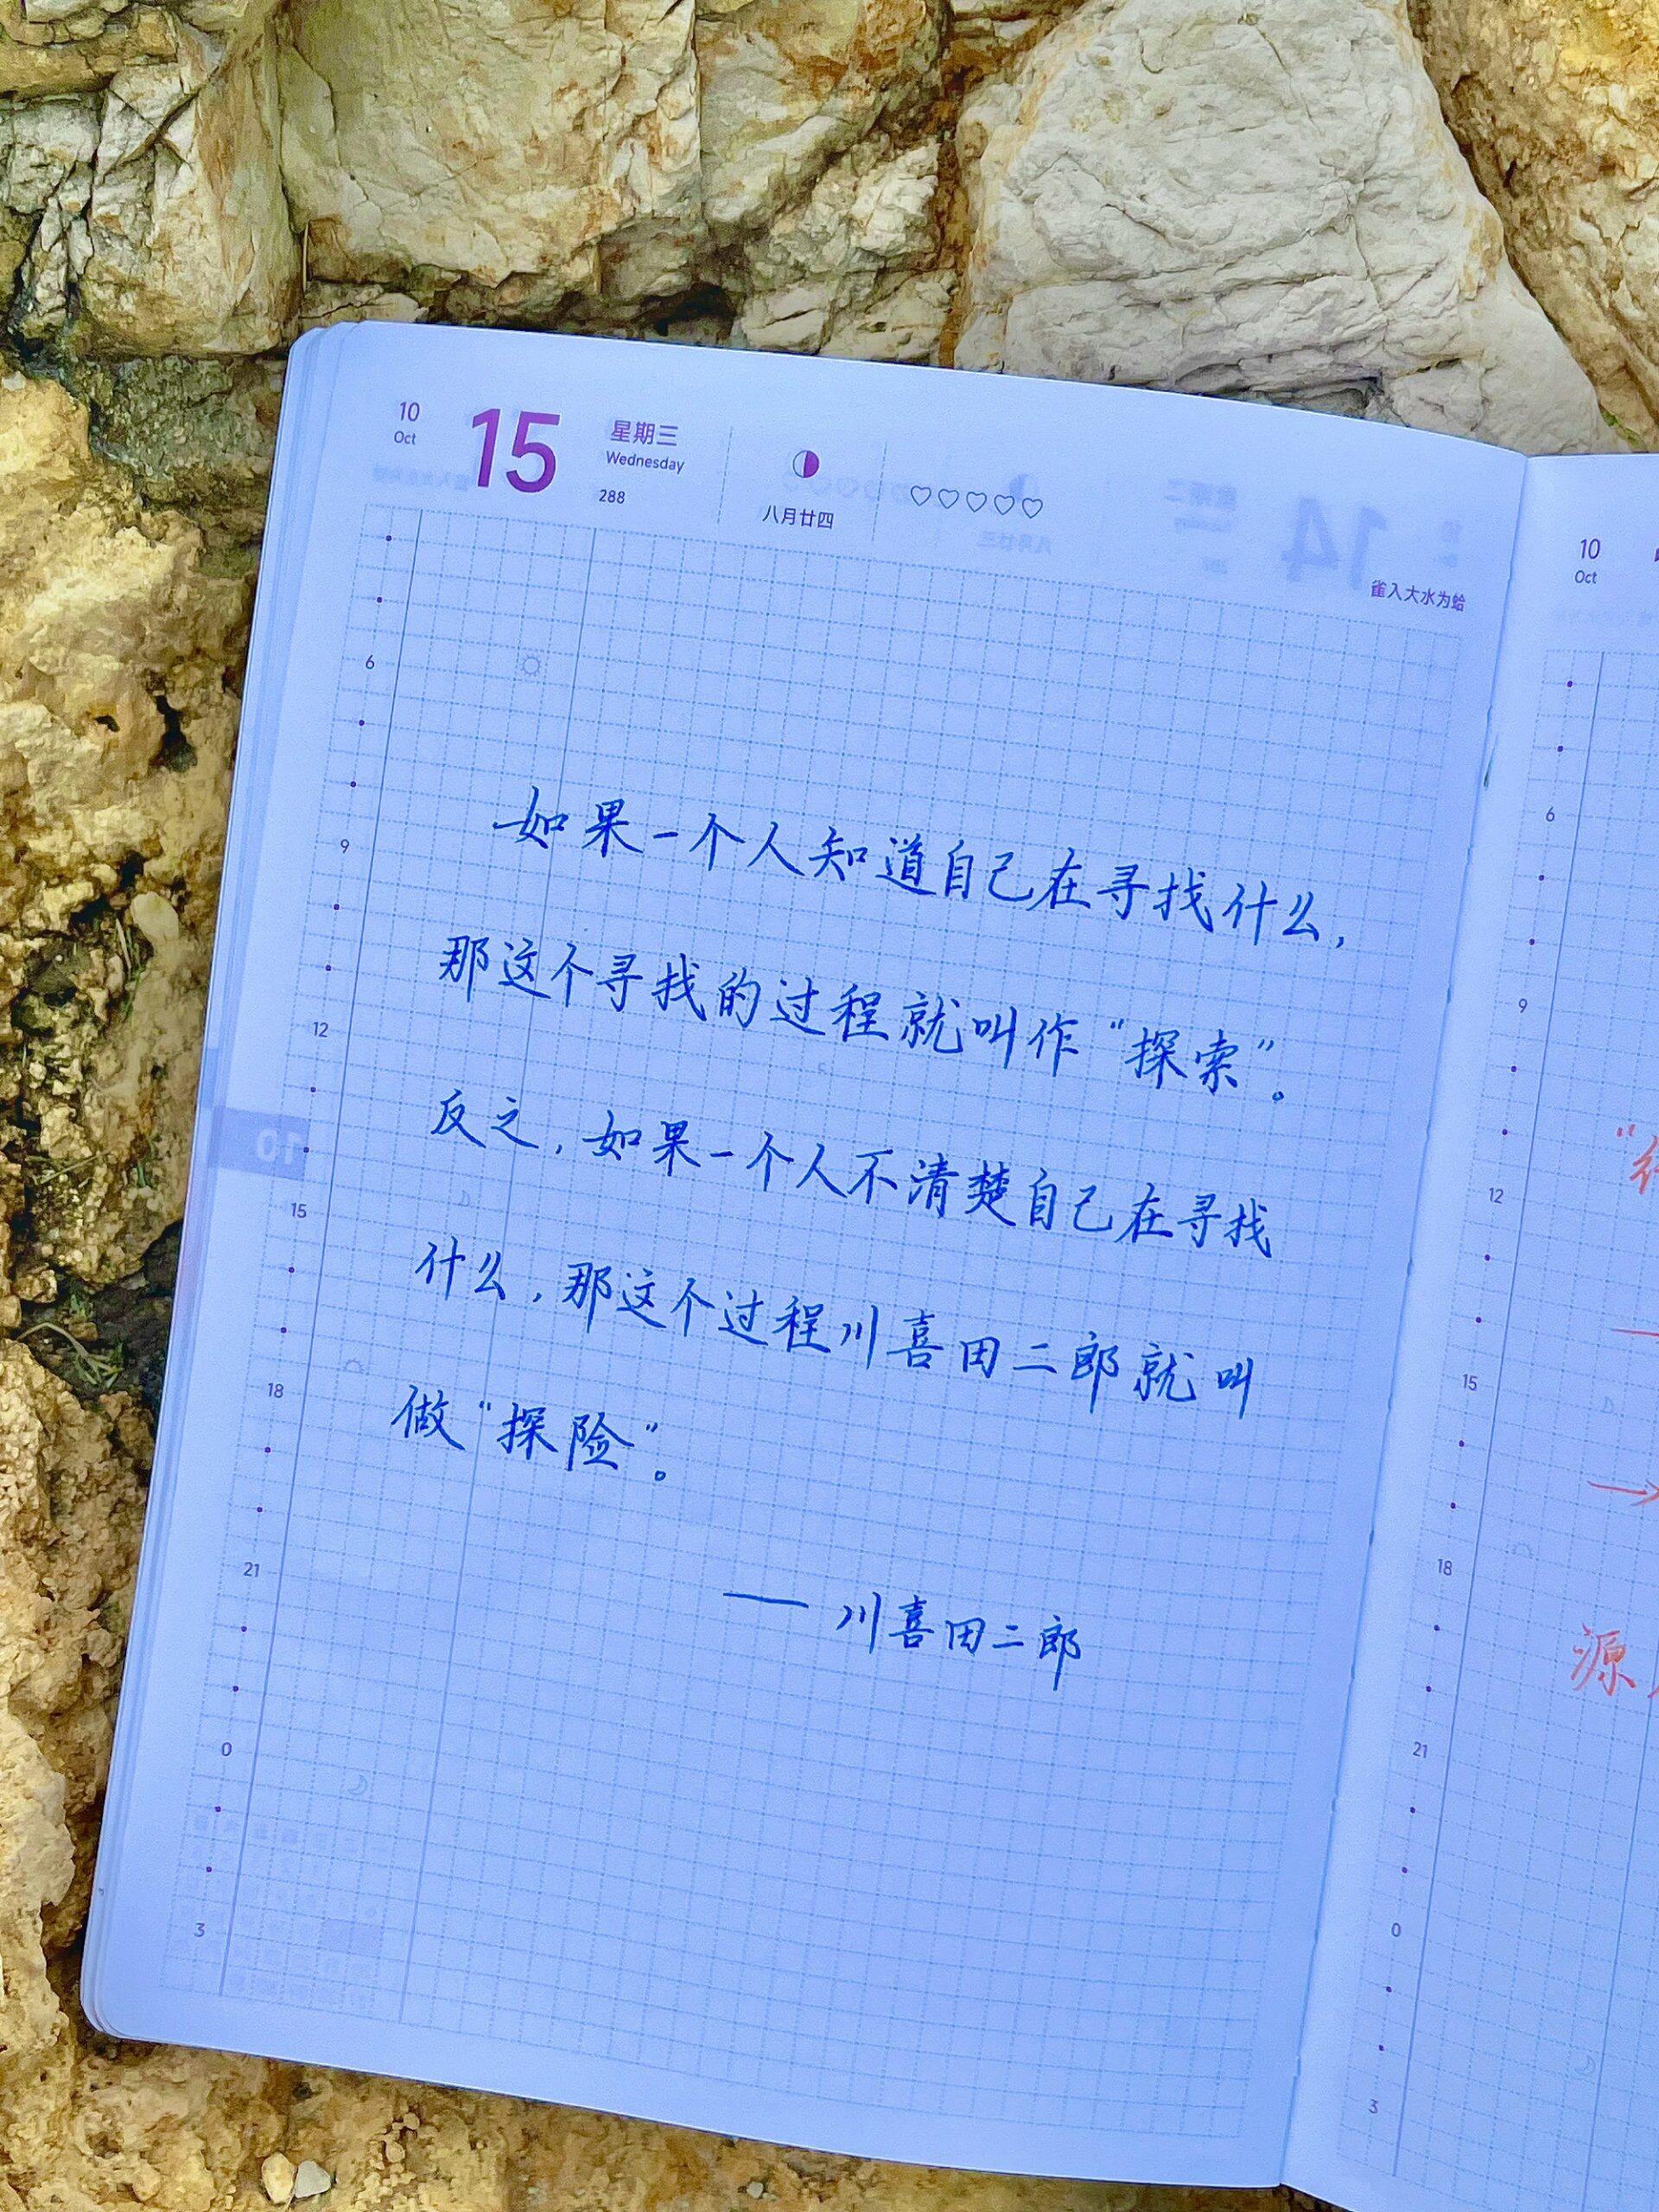 10
Oct
15
星期三
Wednesday
288
八月廿四
雀入大水为蛤
6
9
12
15
18
21
0
3
10
如果一个人知道自己在寻找什么,
那这个寻找的过程就叫作“探索”。
反之,如果一个人不清楚自己在寻找
什么,那这个过程川喜田二郎就叫
做“探险”。
——川喜田二郎
10
Oct
6
9
12
15
18
21
0
3
源